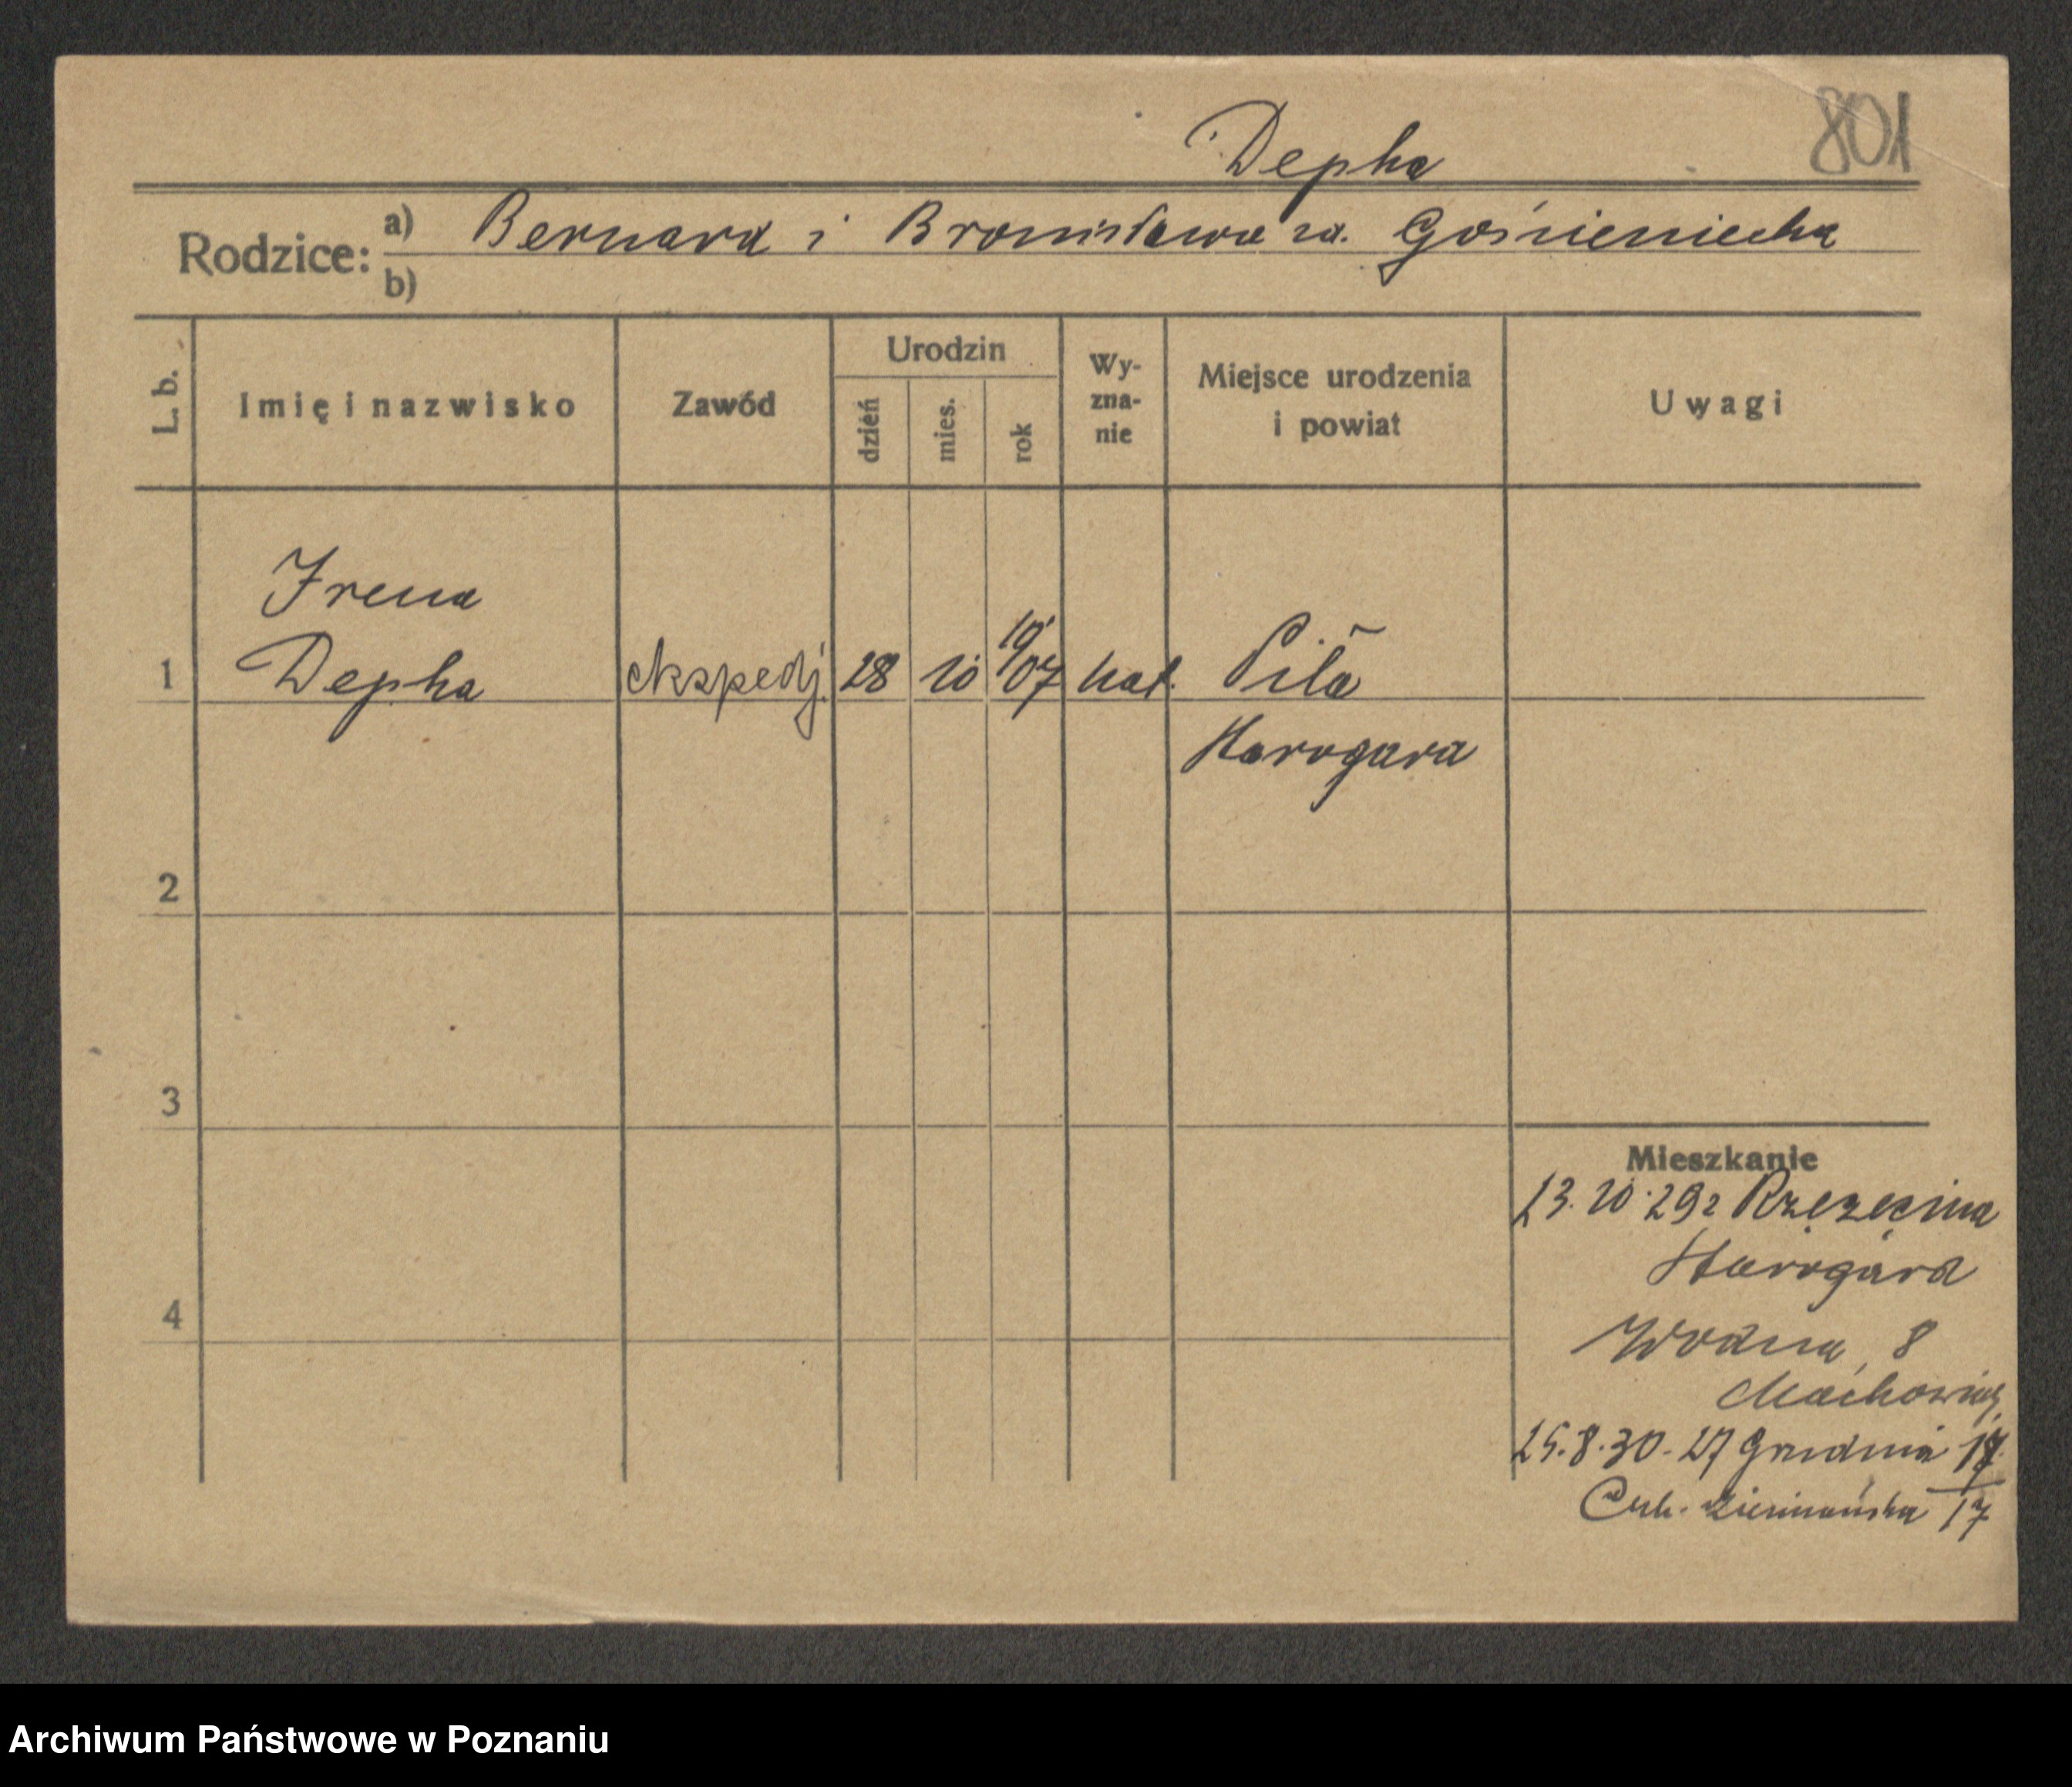 Depka
801
Rodzice: a) Bernard i Bronisława zd. Gośnieniecka
b)
L. b.
Imię i nazwisko
Zawód
Urodzin
dzień
mies.
rok
Wy-
zna-
nie
Miejsce urodzenia
i powiat
Uwagi
Irena
1 Depka ekspedj. 28 10 19/07 kat. Piła
Starogard
2
3
4
Mieszkanie
13.10.29 z Rzezęcina
Starogard
Wodna 8
25.8.30. 27 Grudnia
17
Archiwum Państwowe w Poznaniu